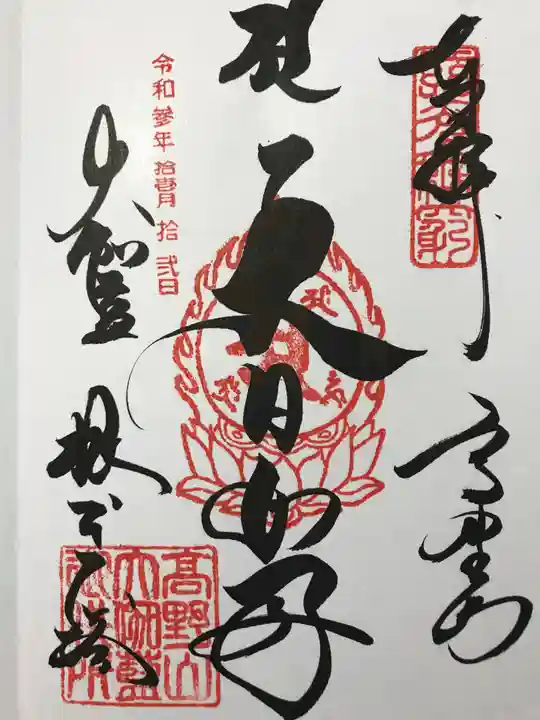 奉拝 高野山
大日如来
大伽藍
根本大塔
令和参年拾壹月拾弐日
高野山
大伽藍